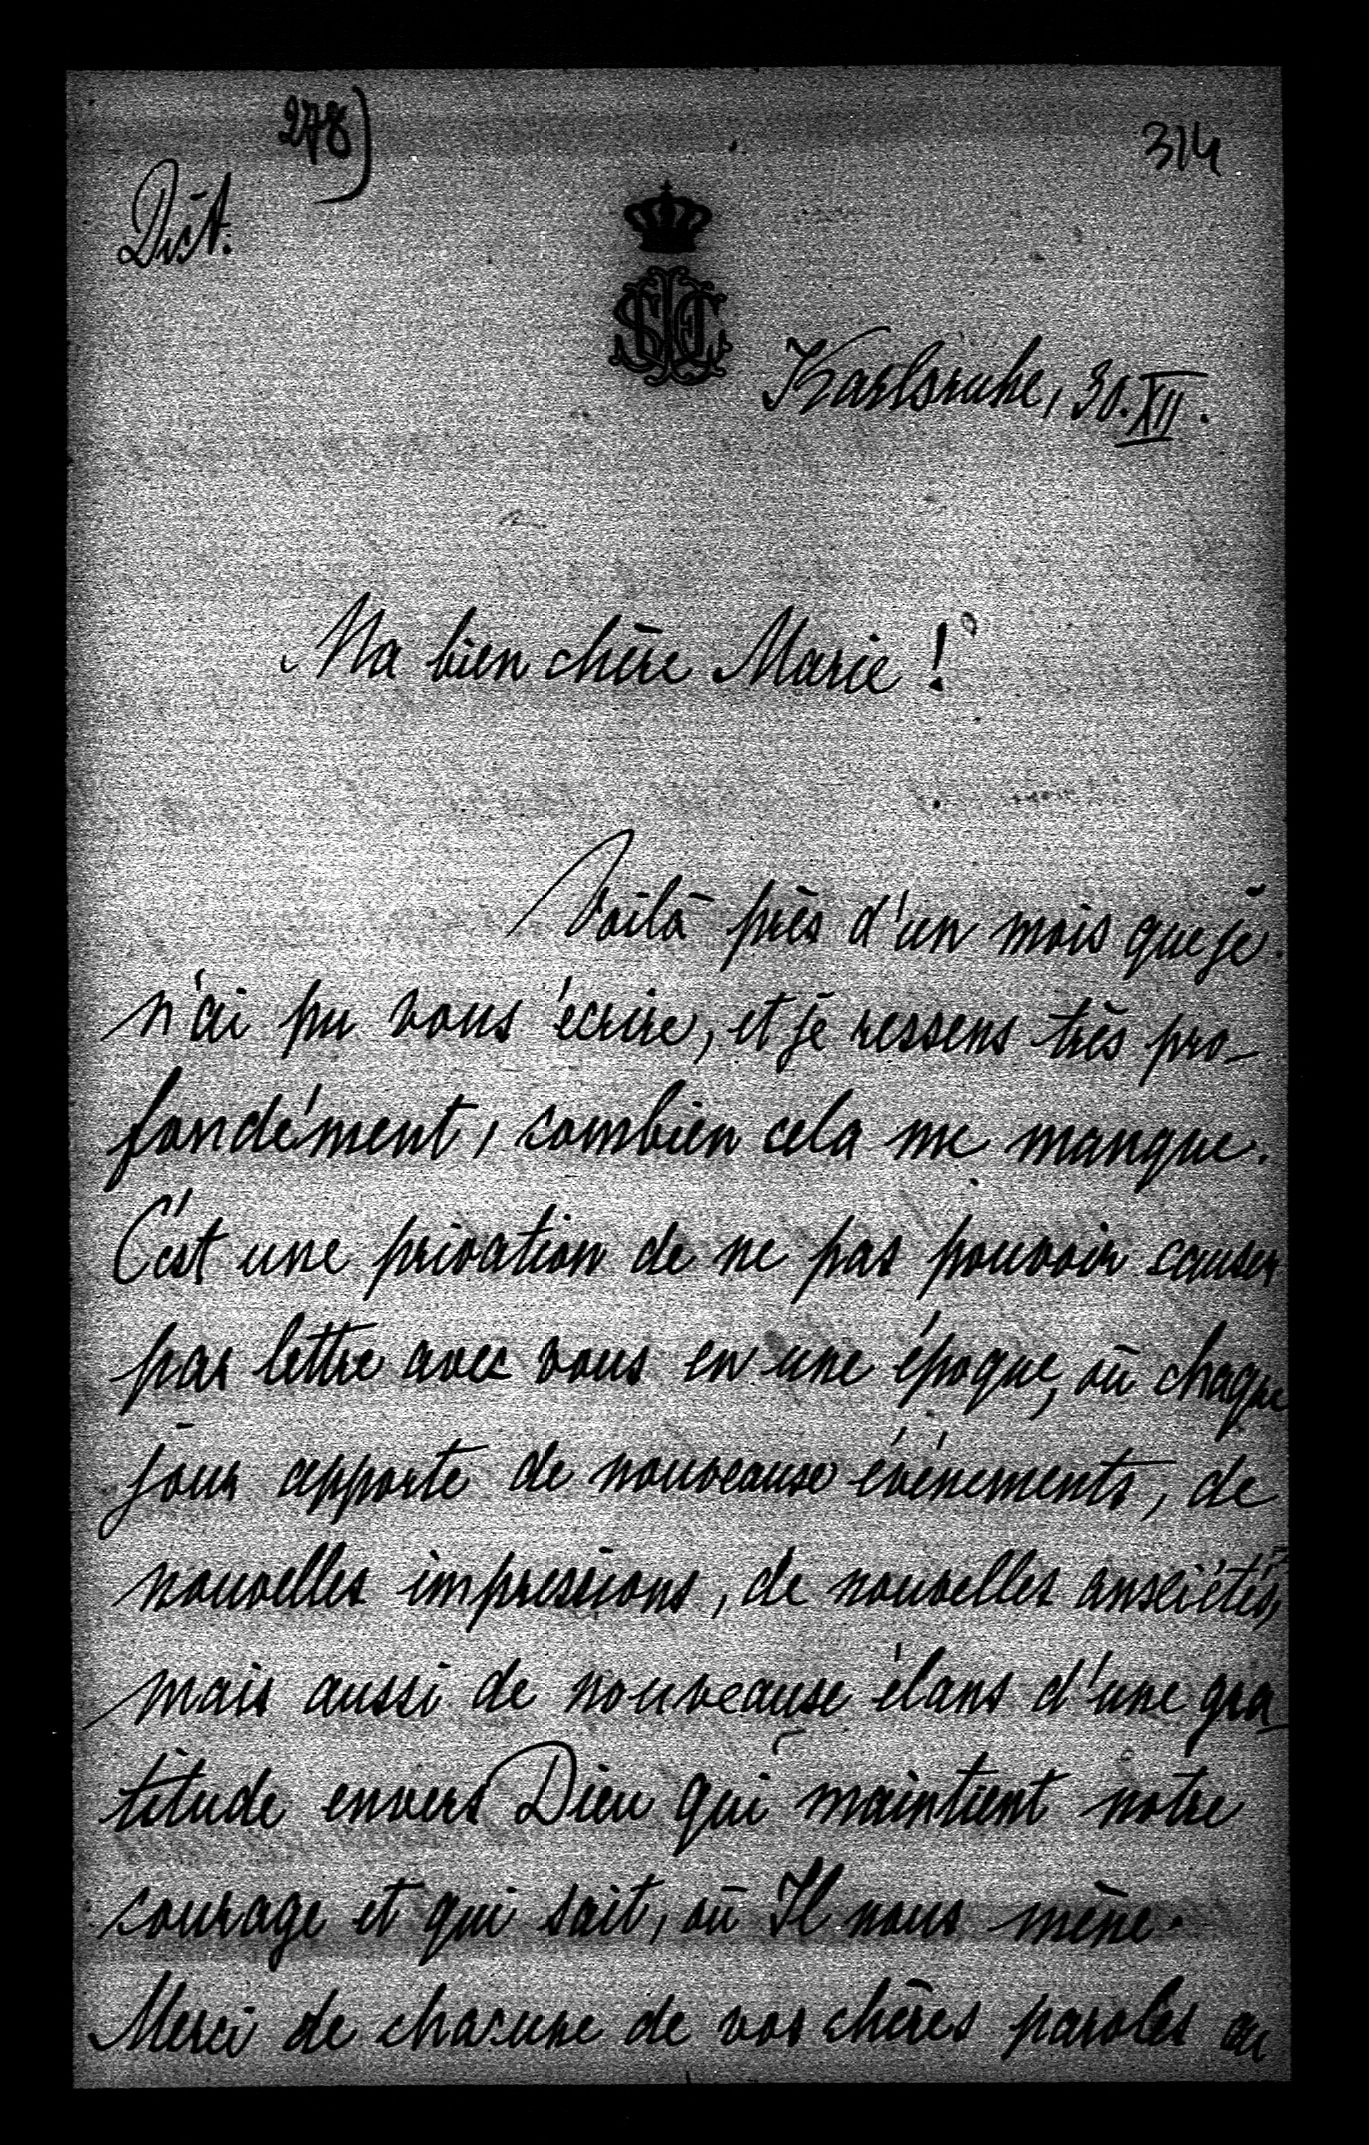 278)
314
Dict.
Karlsruhe, 30. XII.
Ma bien chère Marie !
Voilà près d'un mois que je
n'ai pu vous écrire, et je ressens très pro-
fondément, combien cela me manque.
C'est une privation de ne pas pouvoir causer
par lettre avec vous en une époque, où chaque
jour apporte de nouveaux événements, de
nouvelles impressions, de nouvelles anxiétés,
mais aussi de nouveaux élans d'une gra-
titude envers Dieu qui maintient notre
courage et qui sait, où Il nous mène.
Merci de chacune de vos chères paroles